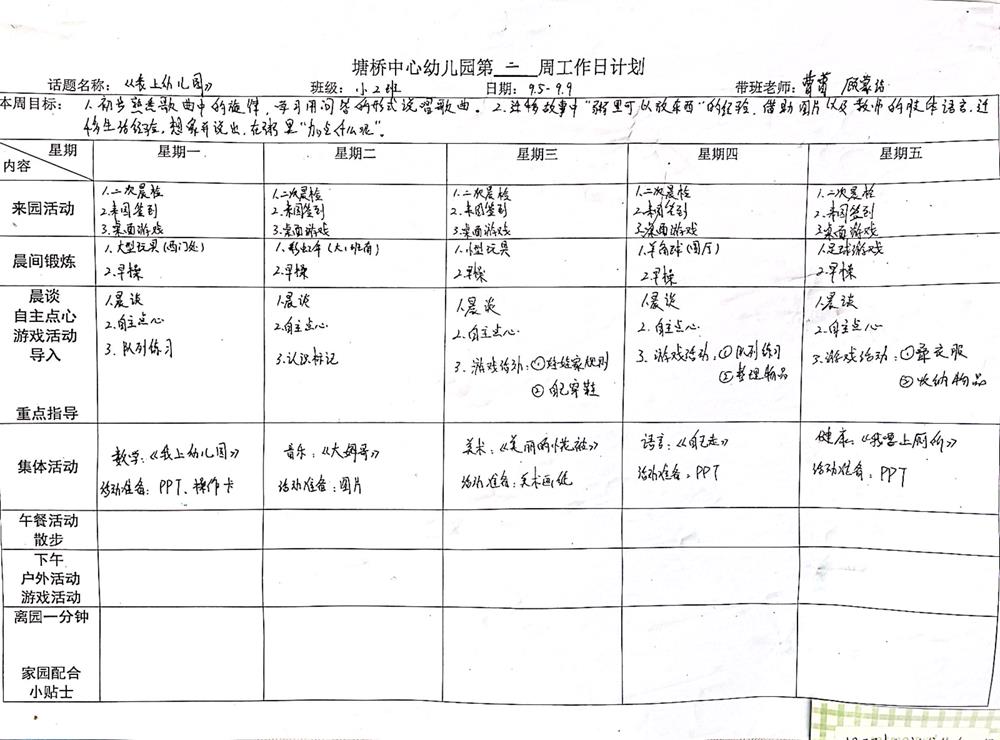 塘桥中心幼儿园第 二 周工作日计划
话题名称：《我上幼儿园》 班级：小2班 日期：9.5-9.9 带班老师：曹蕾
本周目标： 1.初步熟悉歌曲中的旋律，学习用问答的形式说唱歌曲。2.迁移故事中“粥里可以放东西”的经验，借助图片以及教师的肢体语言，迁
移生活经验，想象并说出，在粥里“加点什么呢”。
星期 星期一 星期二 星期三 星期四 星期五
内容
来园活动 1.二次晨检 1.二次晨检 1.二次晨检 1.二次晨检 1.二次晨检
2.来园签到 2.来园签到 2.来园签到 2.来园签到 2.来园签到
3.桌面游戏 3.桌面游戏 3.桌面游戏 3.桌面游戏 3.桌面游戏
晨间锻炼 1.大型玩具（西门处） 1.彩虹伞（大1班前） 1.小型玩具 1.羊角球（园厅） 1.足球游戏
2.早操 2.早操 2.早操 2.早操 2.早操
晨谈 1.晨谈 1.晨谈 1.晨谈 1.晨谈 1.晨谈
自主点心 2.自主点心 2.自主点心 2.自主点心 2.自主点心 2.自主点心
游戏活动 3.队列练习 3.认识标记 3.游戏活动：①娃娃家规则 3.游戏活动：①队列练习 3.游戏活动：①叠衣服
导入 ②自己穿鞋 ②整理物品 ②收纳物品
重点指导
集体活动 数学：《我上幼儿园》 音乐：《大拇哥》 美术：《美丽的 》 语言：《自己走》 健康：《我会上厕所》
活动准备：PPT、操作卡 活动准备：图片 活动准备：美术画纸 活动准备：PPT 活动准备：PPT
午餐活动
散步
下午
户外活动
游戏活动
离园一分钟
家园配合
小贴士